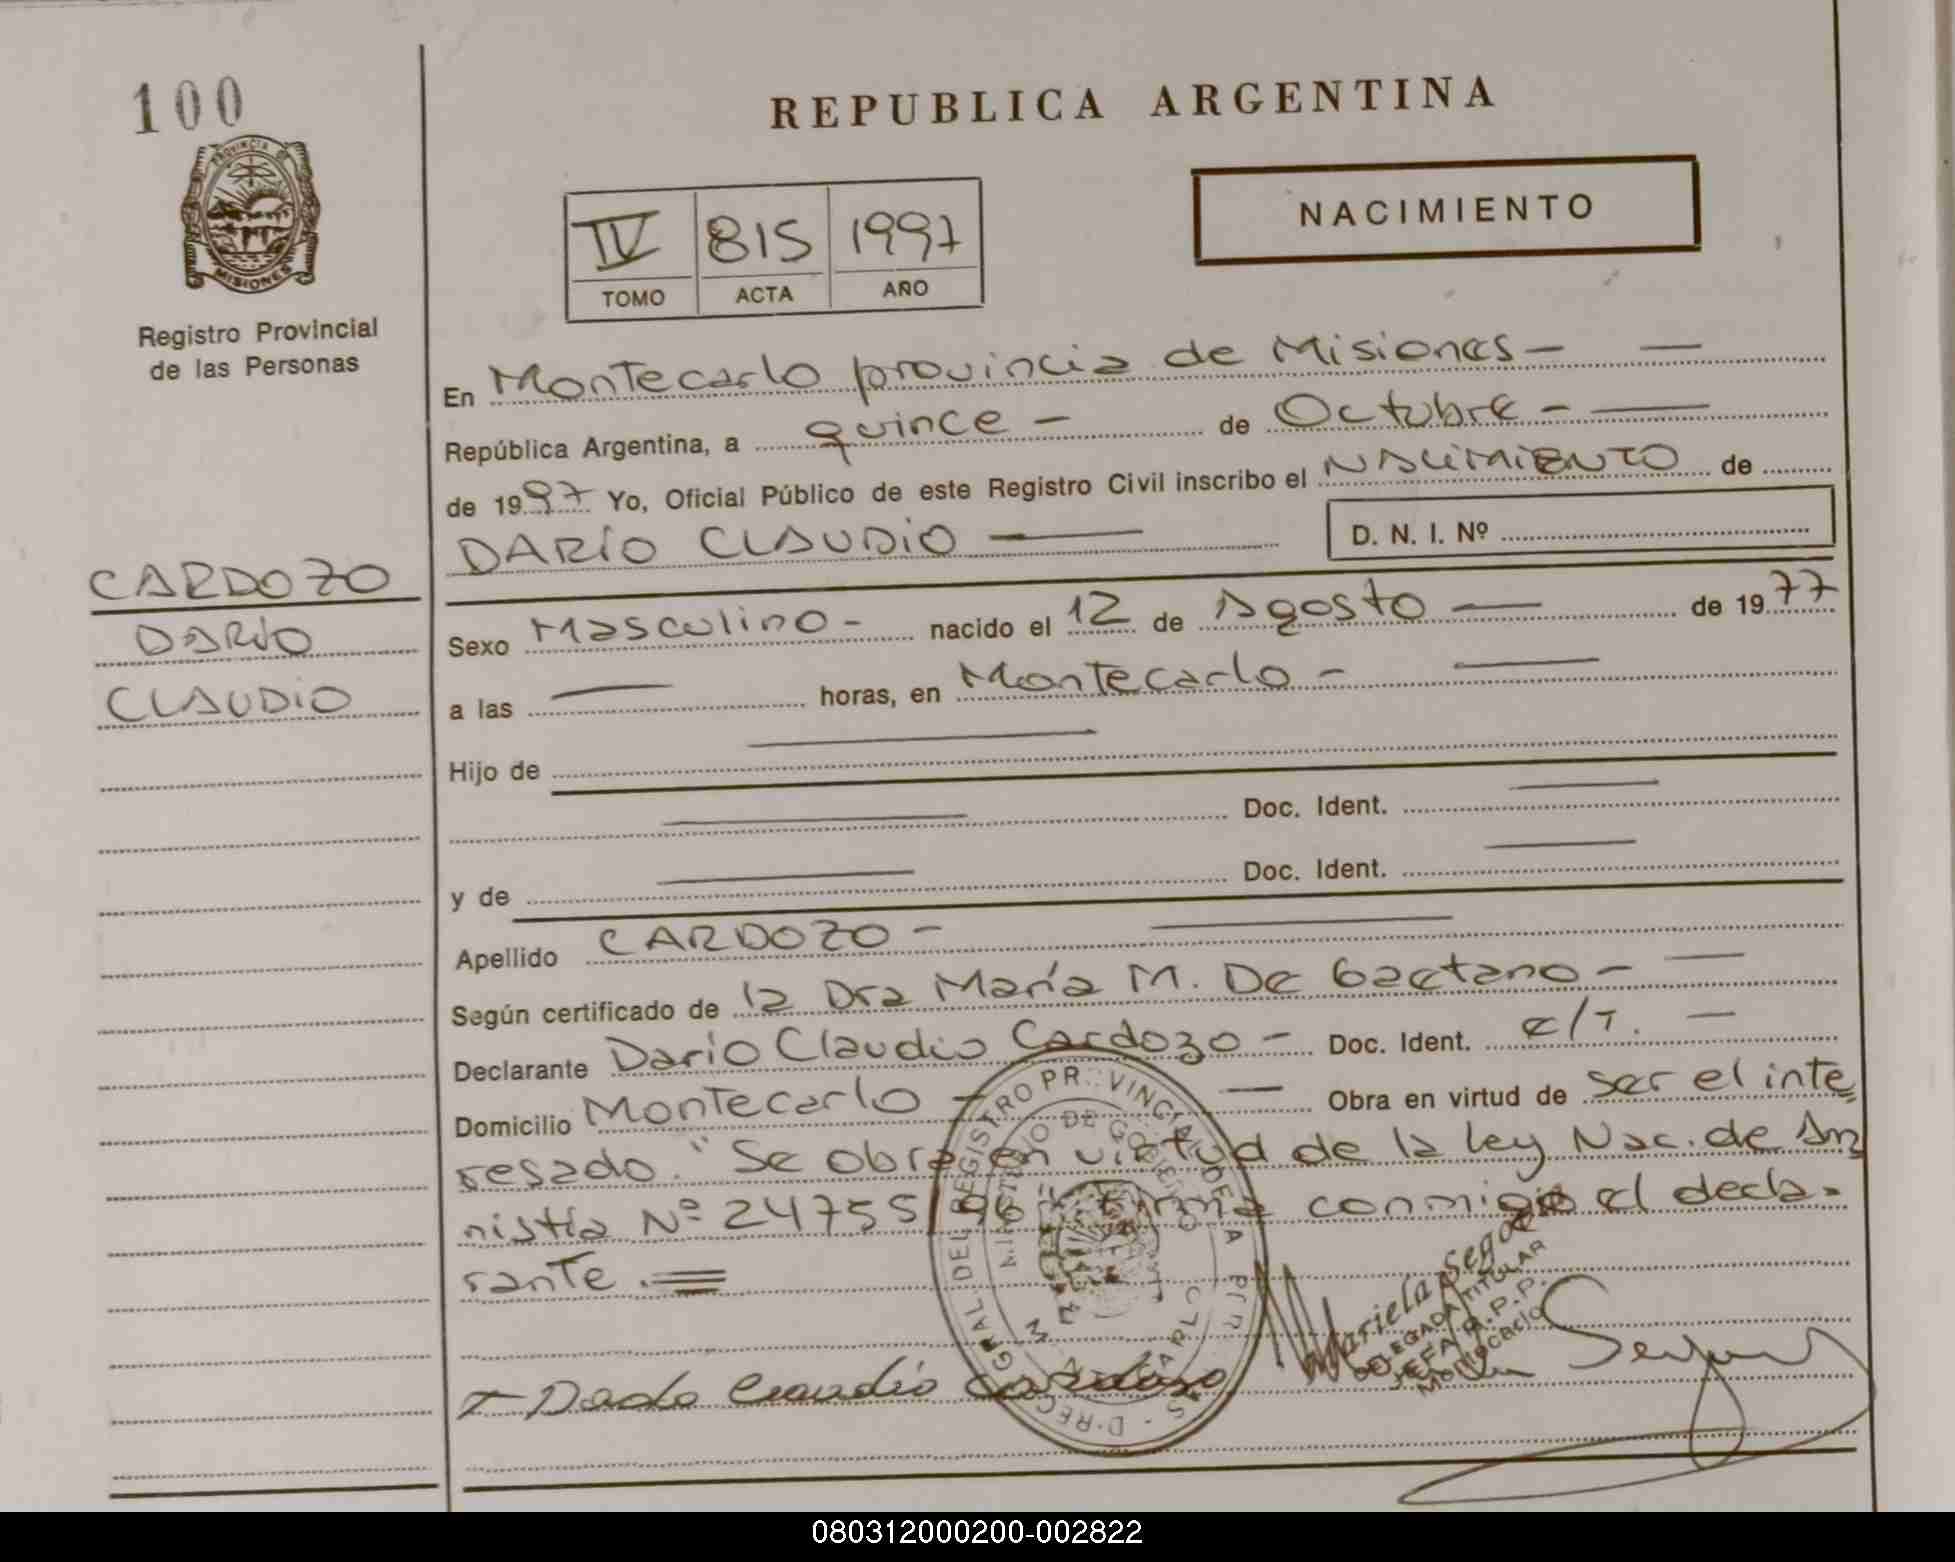 100
PROVINCIA DE
MISIONES
Registro Provincial
de las Personas
CARDOZO
DARÍO
CLAUDIO
REPUBLICA ARGENTINA
IV 815 1997
TOMO ACTA AÑO
NACIMIENTO
En Montecarlo provincia de Misiones — —
República Argentina, a quince — de Octubre — —
de 1997 Yo, Oficial Público de este Registro Civil inscribo el NACIMIENTO de
DARÍO CLAUDIO — D. N. I. Nº
Sexo Masculino — nacido el 12 de Agosto — de 1977
a las — horas, en Montecarlo — —
Hijo de —
— Doc. Ident. —
y de — Doc. Ident. —
Apellido CARDOZO — —
Según certificado de la Dra María M. De Gaetano — —
Declarante Darío Claudio Cardozo — Doc. Ident. e/T. —
Domicilio Montecarlo — — Obra en virtud de ser el inte
resado. "Se obra en virtud de la ley Nac. de Am
nistía Nº 24755/96" Firma conmigo el decla-
rante.=
Mariela Segov
DELEGADA TITULAR
JEFA R.P.P.
Montecarlo
Claudio Cardozo
080312000200-002822